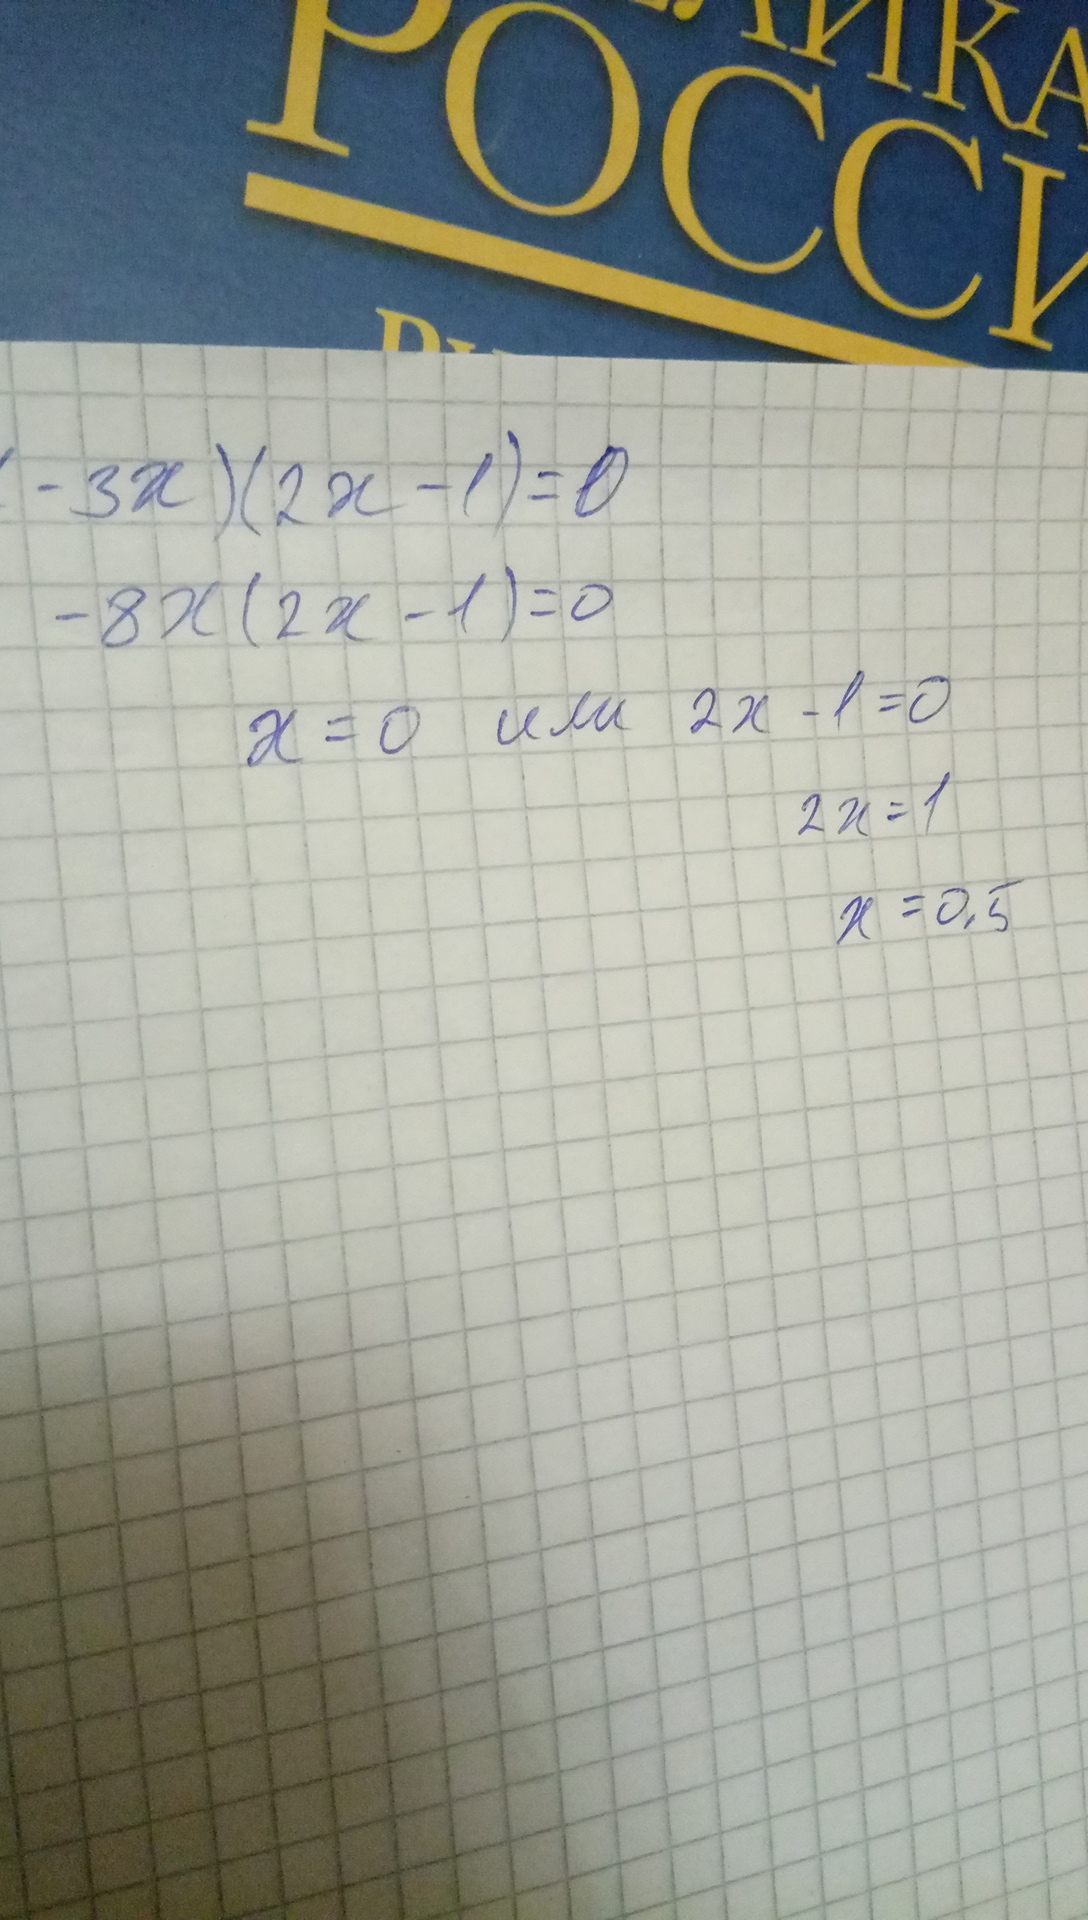 ЛИКА
РОССИ
(-3x)(2x-1)=0
-8x(2x-1)=0
x=0 или 2x-1=0
2x=1
x=0,5